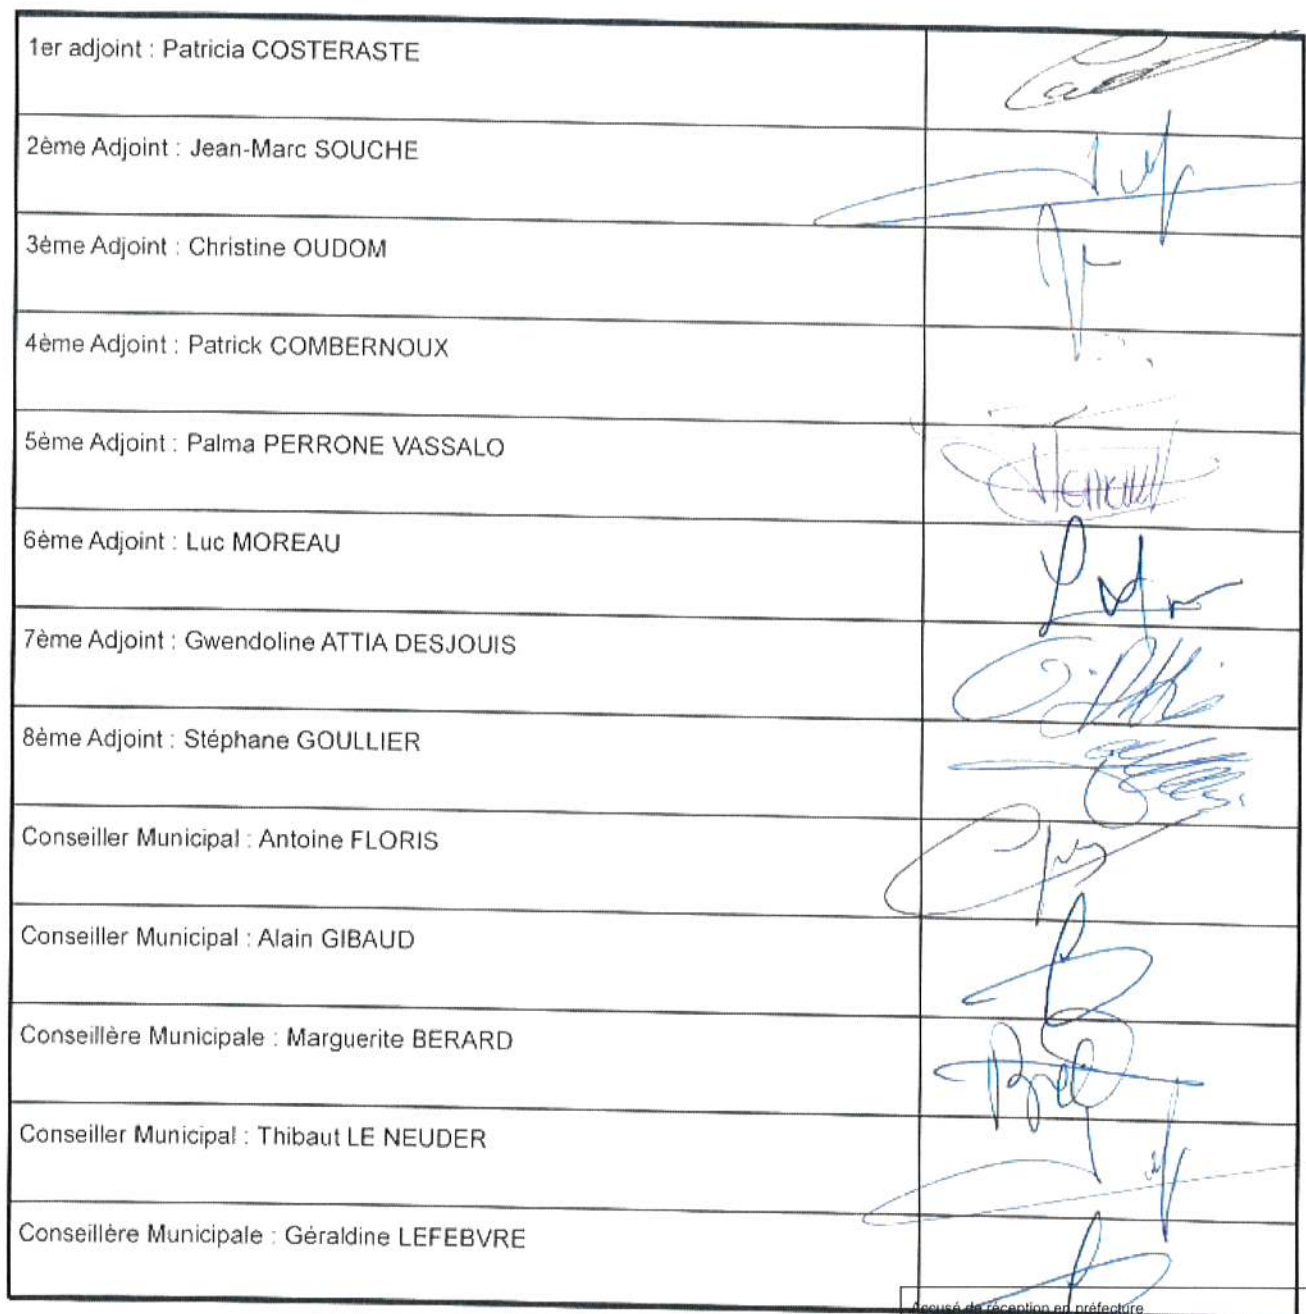 1er adjoint : Patricia COSTERASTE
2ème Adjoint : Jean-Marc SOUCHE
3ème Adjoint : Christine OUDOM
4ème Adjoint : Patrick COMBERNOUX
5ème Adjoint : Palma PERRONE VASSALO
6ème Adjoint : Luc MOREAU
7ème Adjoint : Gwendoline ATTIA DESJOUIS
8ème Adjoint : Stéphane GOULLIER
Conseiller Municipal : Antoine FLORIS
Conseiller Municipal : Alain GIBAUD
Conseillère Municipale : Marguerite BERARD
Conseiller Municipal : Thibaut LE NEUDER
Conseillère Municipale : Géraldine LEFEBVRE
Accusé de réception en préfecture